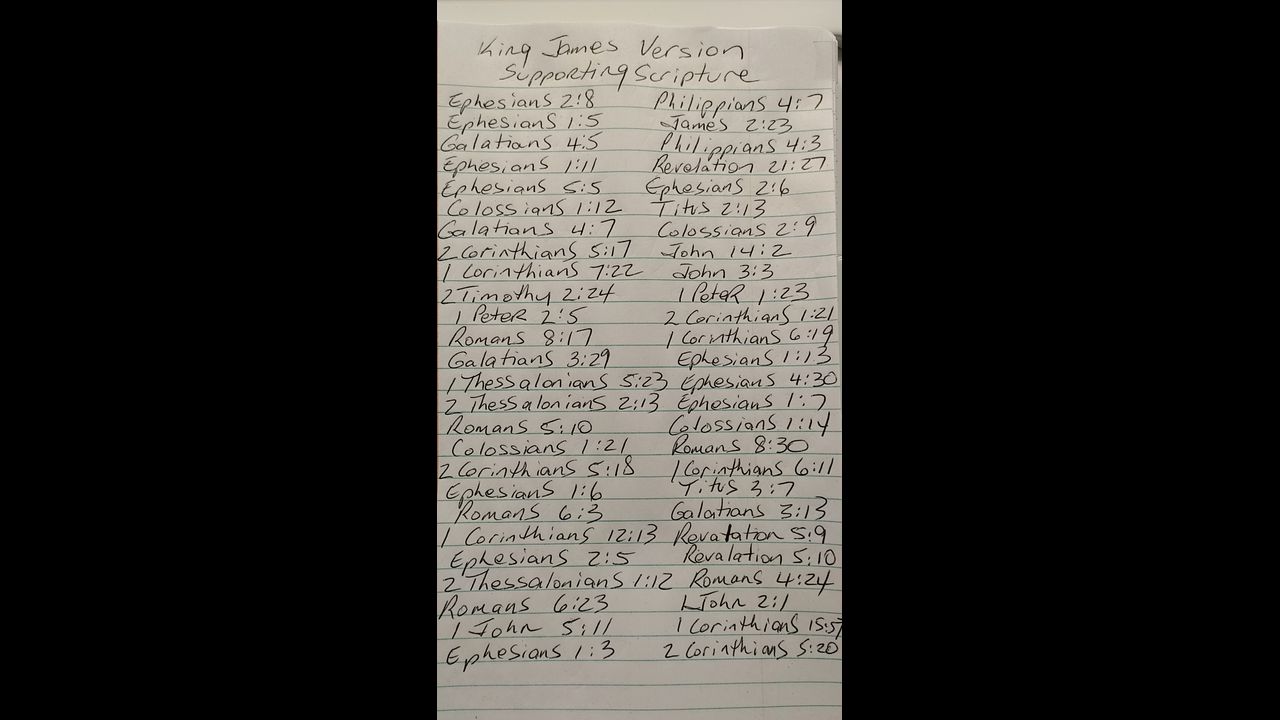 King James Version
Supporting Scripture
Ephesians 2:8 Philippians 4:7
Ephesians 1:5 James 2:23
Galatians 4:5 Philippians 4:3
Ephesians 1:11 Revelation 21:27
Ephesians 5:5 Ephesians 2:6
Colossians 1:12 Titus 2:13
Galatians 4:7 Colossians 2:9
2 Corinthians 5:17 John 14:2
1 Corinthians 7:22 John 3:3
2 Timothy 2:24 1 Peter 1:23
1 Peter 2:5 2 Corinthians 1:21
Romans 8:17 1 Corinthians 6:19
Galatians 3:29 Ephesians 1:13
1 Thessalonians 5:23 Ephesians 4:30
2 Thessalonians 2:13 Ephesians 1:7
Romans 5:10 Colossians 1:14
Colossians 1:21 Romans 8:30
2 Corinthians 5:18 1 Corinthians 6:11
Ephesians 1:6 Titus 3:7
Romans 6:3 Galatians 3:13
1 Corinthians 12:13 Revalation 5:9
Ephesians 2:5 Revalation 5:10
2 Thessalonians 1:12 Romans 4:24
Romans 6:23 1 John 2:1
1 John 5:11 1 Corinthians 15:57
Ephesians 1:3 2 Corinthians 5:20